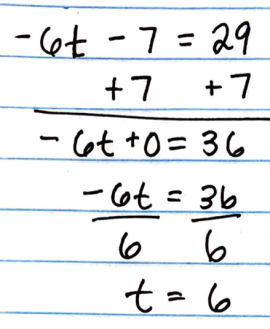 -6t - 7 = 29
+7 +7
-6t + 0 = 36
-6t = 36
6 6
t = 6